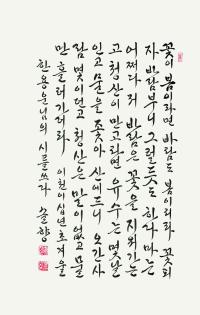 꽃이 봄이라면 바람도 봄이리라 꽃피
자 바람부니 그럴듯도 하다마는
어쩌다 저 바람은 꽃을 지워가는
고 청산이 만고라면 유수는 몇날
인고 물을 좇아 산에드니 오간사
람 몇이던고 청산은 말이 없고 물
만 흘러가더라 이천이십년초겨울
한용운님의 시를쓰다 솔향